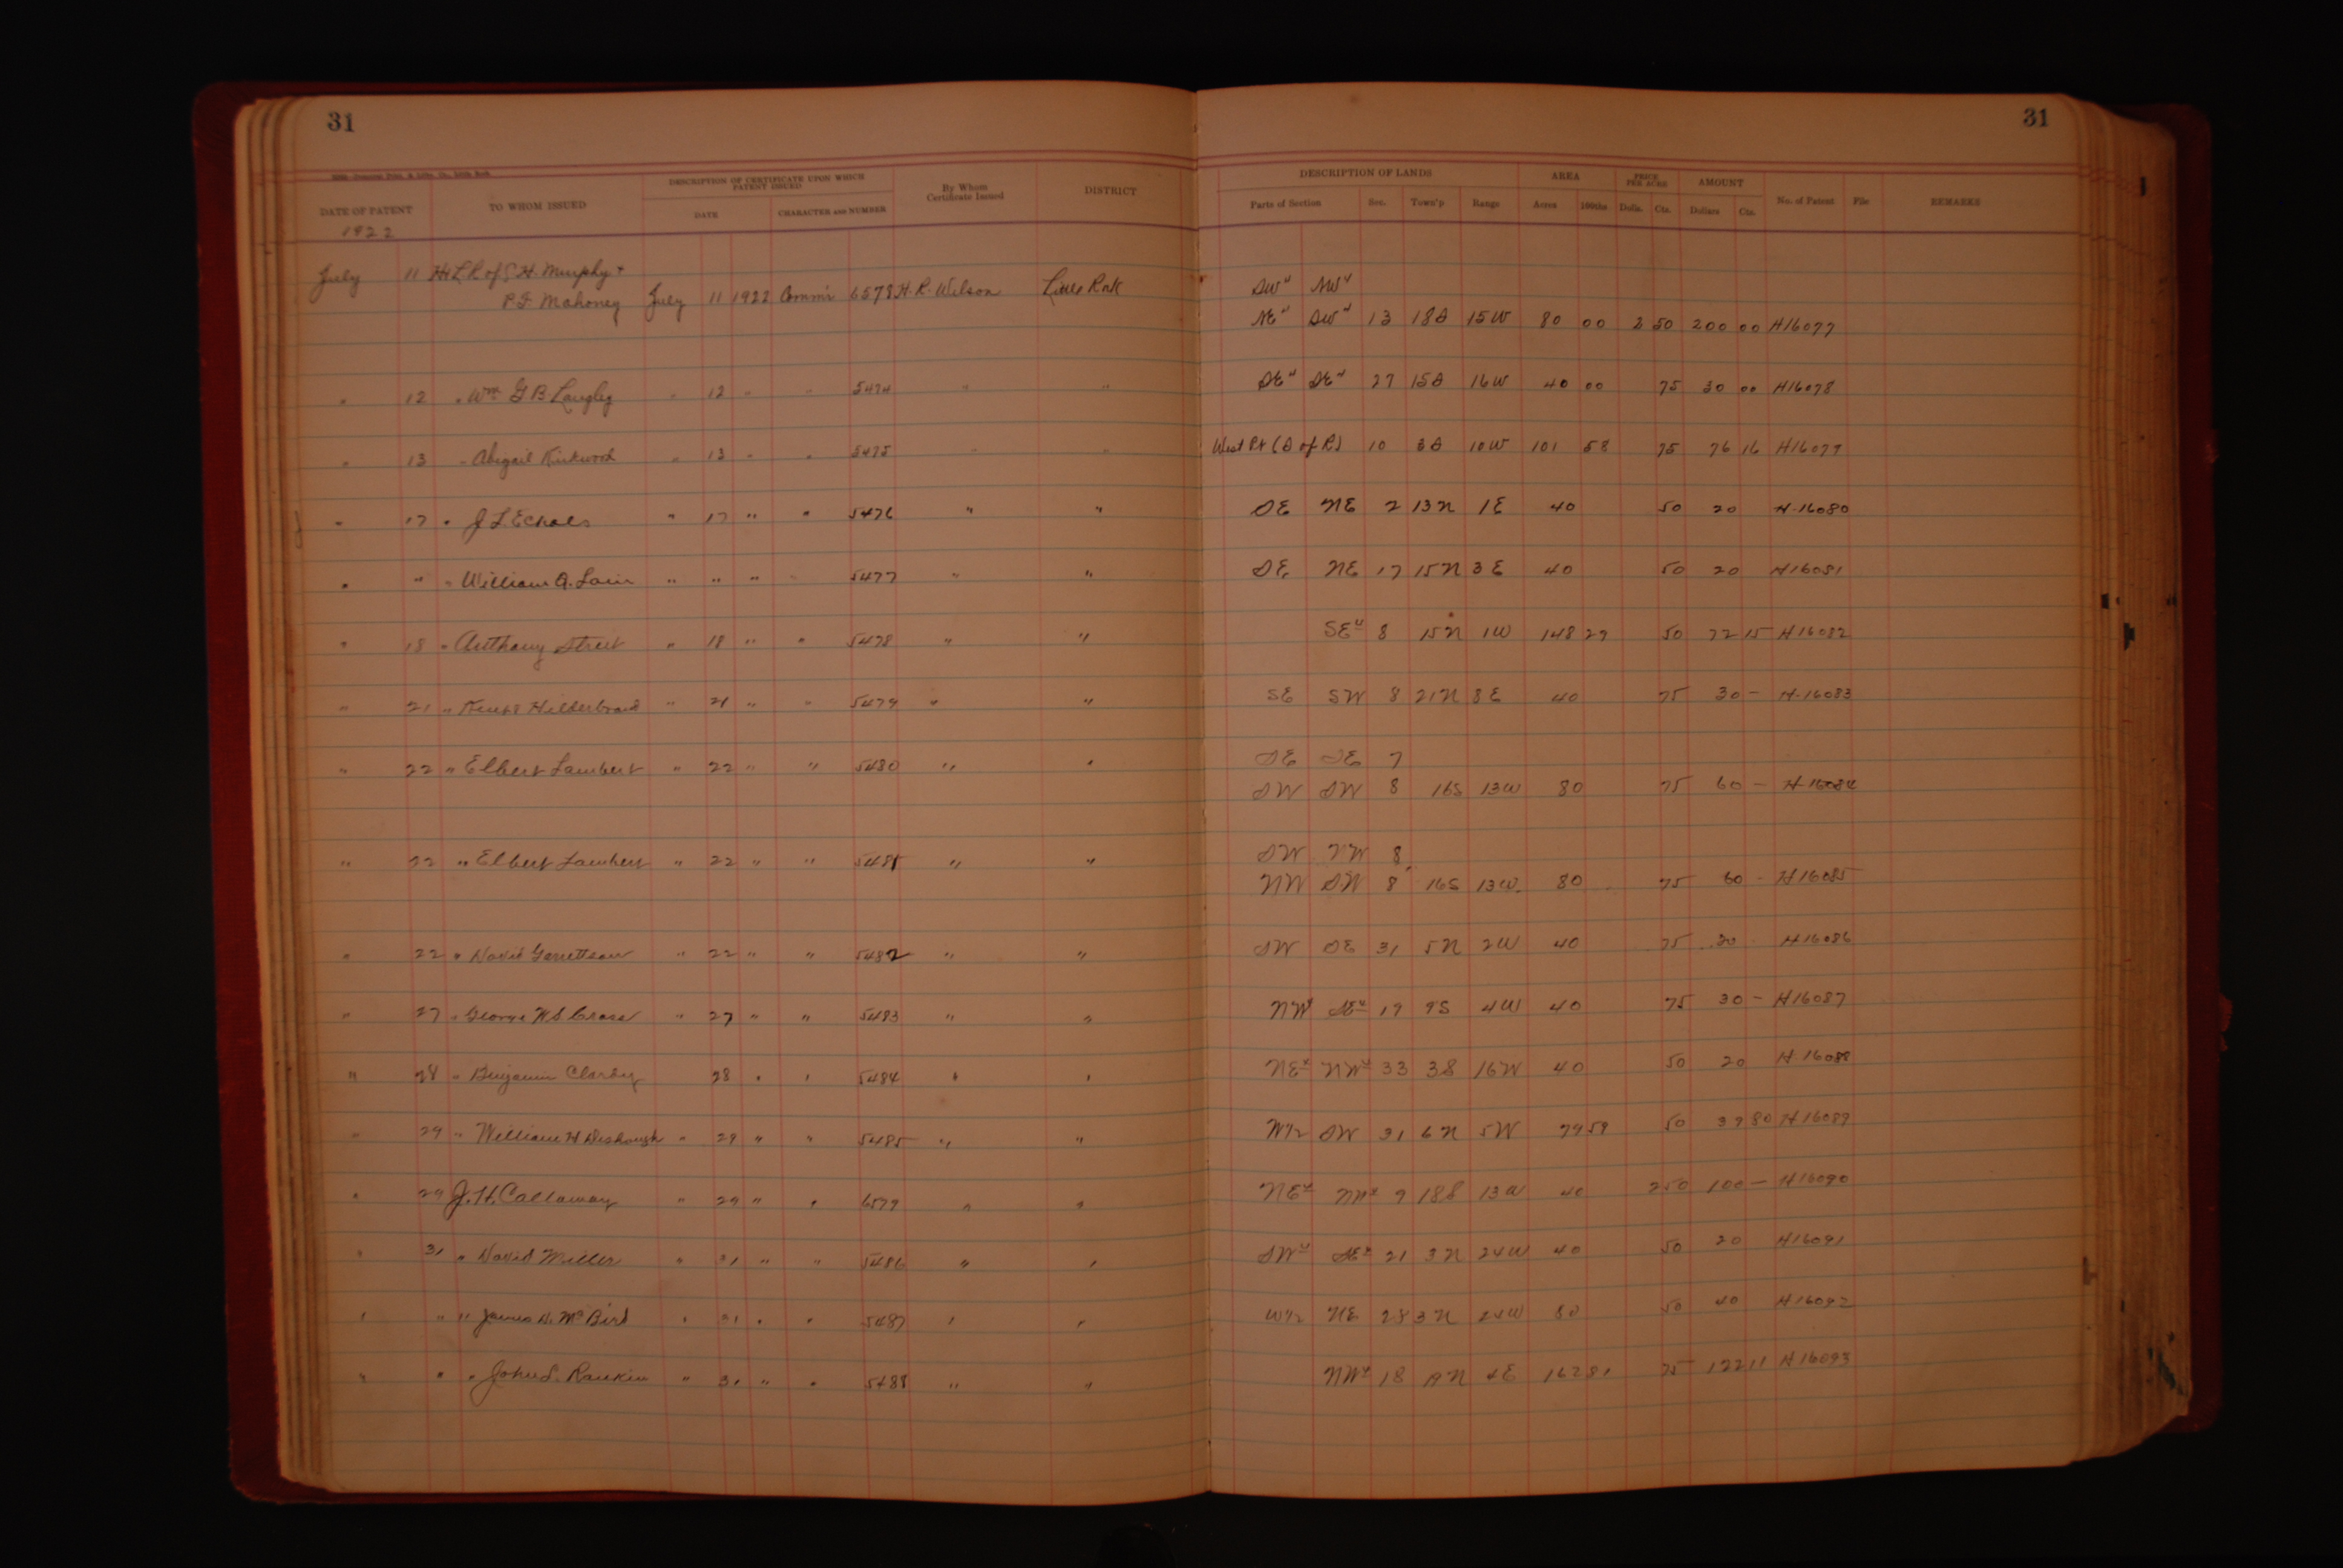 31
31
DATE OF PATENT TO WHOM ISSUED DESCRIPTION OF CERTIFICATE UPON WHICH PATENT ISSUED DATE CHARACTER AND NUMBER By Whom Certificate Issued DISTRICT DESCRIPTION OF LANDS Parts of Section Sec. Town'p Range AREA Acres 100ths PRICE PER ACRE Dolls. Cts. AMOUNT Dollars Cts. No. of Patent File REMARKS
1922
July 11 H. Murphy +
P.F. Mahoney July 11 1922 Comm'r 6578 H. R. Wilson SW" NW"
NE" SW" 13 18S 15W 80 00 2 50 200 00 H16077
" 12 " Wm G B Langley " 12 " " 5474 " " SE" SE" 27 15S 16W 40 00 75 30 00 H16078
" 13 " Abigail Kirkwood " 13 " " 5475 " " West Pt (S of R) 10 3S 10W 101 58 75 76 16 H16079
" 17 " J L Echols " 17 " " 5476 " " SE NE 2 13N 1E 40 50 20 H-16080
" " " William A. Lain " " " " 5477 " " SE NE 17 15N 3E 40 50 20 H16081
" 18 " Anthony Street " 18 " " 5478 " " SE" 8 15N 1W 148 29 50 72 15 H16082
" 21 " Hilderbrand " 21 " " 5479 " " SE SW 8 21N 8E 40 75 30 — H-16083
" 22 " Elbert Lambert " 22 " " 5480 " " SE SE 7
SW SW 8 16S 13W 80 75 60 — H-16084
" 22 " Elbert Lambert " 22 " " 5481 " " SW NW 8
NW SW 8 16S 13W 80 75 60 - H16085
" 22 " David Garrettson " 22 " " 5482 " " SW SE 31 5N 2W 40 75 H16086
" 27 " George W S Cross " 27 " " 5483 " " NW SE" 19 9S 4W 40 75 30 — H16087
" 28 " Benjamin 28 " " 5484 " " NE" NW" 33 3S 16W 40 50 20 H-16088
" 29 " William H " 29 " " 5485 " " W½ SW 31 6N 5W 79 59 50 39 80 H16089
" 29 J. H. Callaway " 29 " " 6579 " " NE" NW" 9 18S 13W 40 2 50 100 — H16090
" 31 " David Miller " 31 " " 5486 " " SW" SE" 21 3N 24W 40 50 20 H16091
" " " James A. McBird " 31 " " 5487 " " W½ NE 28 3N 24W 80 50 40 H16092
" " " John S. Rankin " 31 " " 5488 " " NW" 18 19N 4E 162 81 75 122 11 H16093